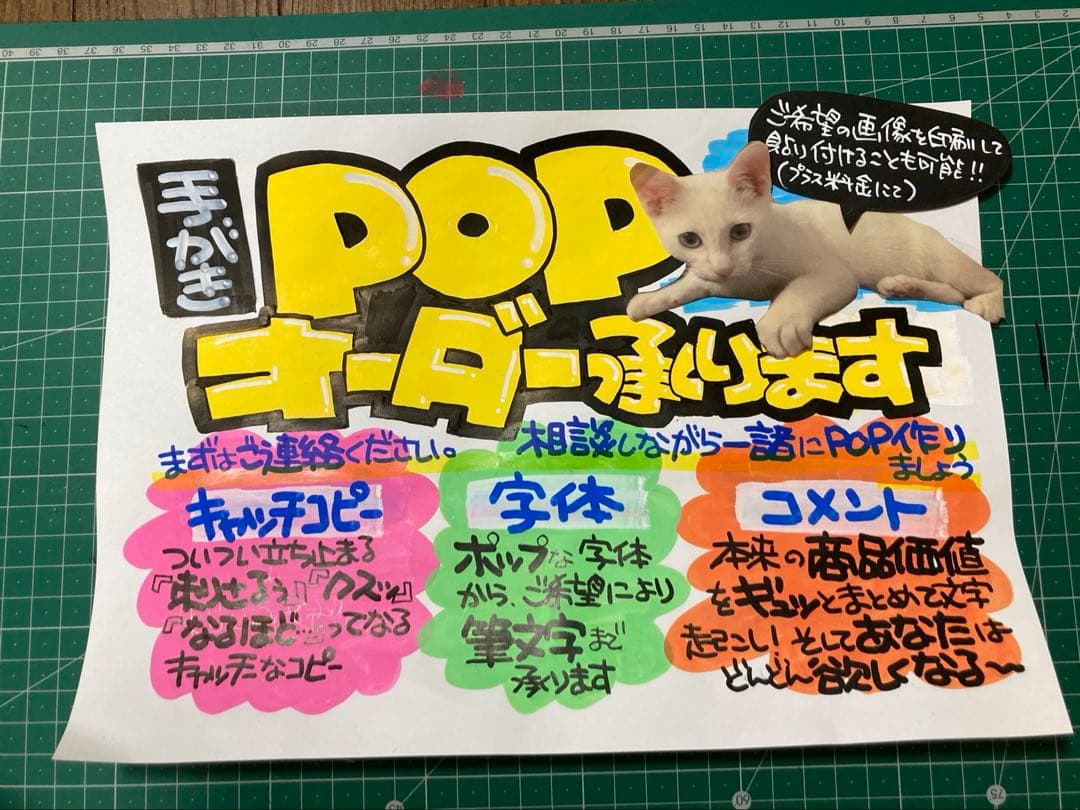 手がき
POP
オーダー承ります
ご希望の画像を印刷して
貼り付けることも可能!!
(プラス料金にて)
まずはご連絡ください。
相談しながら一諸にPOP作り
ましょう
キャッチコピー
ついつい立ち止まる
『刺さるぅ』『クスッ』
『なるほど…』ってなる
キャッチなコピー
字体
ポップな字体
から、ご希望により
筆文字まで
承ります
コメント
本来の商品価値
をギュッとまとめて文字
起こし!そしてあなたは
どんどん欲しくなる〜
40 39 38 37 36 35 34 33 32 31 30
5 4 3 2
45
60
75